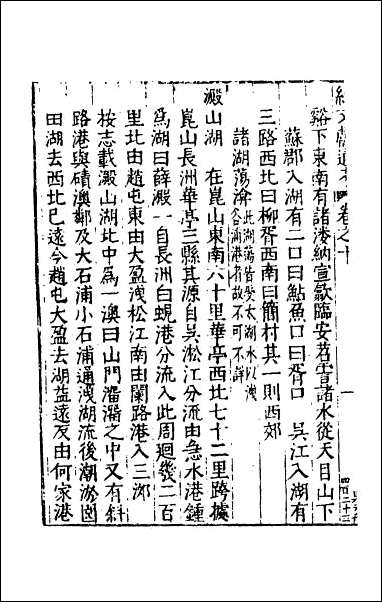 文獻通考 卷之十 一
谿下東南有諸漊納宣歙臨安苕霅諸水從天目山下
蘇郡入湖有二口曰鮎魚口曰胥口 吳江入湖有
三路西北曰柳胥西南曰簡村其一則西郊
諸湖蕩瀹 此湖蕩皆受太湖水以洩各浦港者故不可不詳
澱山湖 在崑山東南六十里華亭西北七十二里跨據
崑山長洲華亭三縣其源自吳淞江分流由急水港鍾
爲湖曰薛澱一自長洲白蜆港分流入此周迴幾二百
里北由趙屯東由大盈洩松江南由闌路港入三泖
按志載澱山湖北中爲一澳曰山門溜瀦之中又有斜
路港與磧澳鄰及大石浦小石浦通洩湖流後潮淤園
田湖去西北已遠今趙屯大盈去湖益遠反由何家港